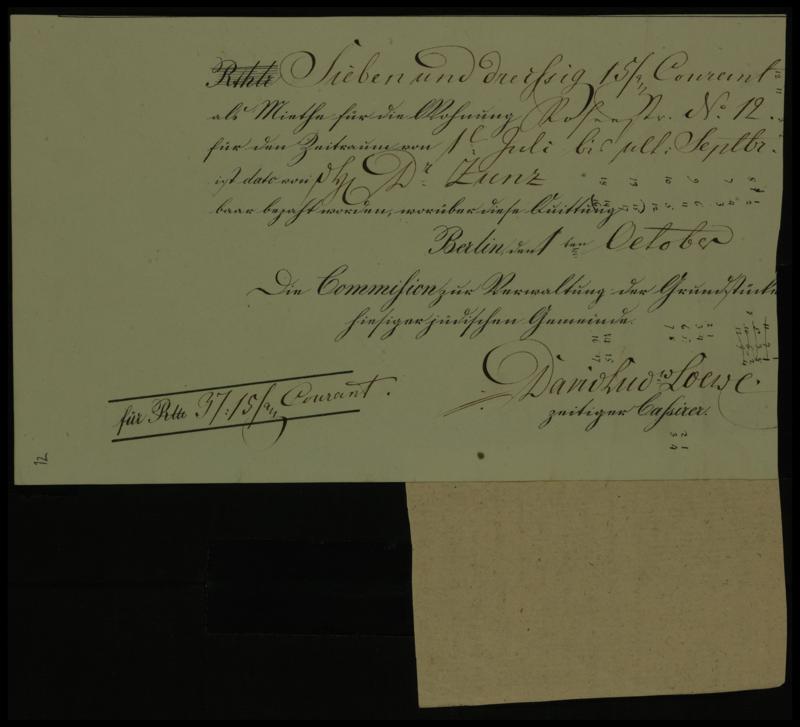 Rthlr Sieben und dreissig 15/ Courant
als Miethe für die Wohnung Rosenstr. No. 12.
für den Zeitraum von 1t Juli bis ult: Septbr.
ist dato von Dr. Zunz
baar bezahlt worden, worüber diese Quittung
Berlin, den 1 ten October
Die Commission zur Verwaltung der Grundstücke
hiesiger jüdischen Gemeinde.
David Lud. Loewe.
zeitiger Cassirer.
für Rtlr 37:15/ Courant.
12